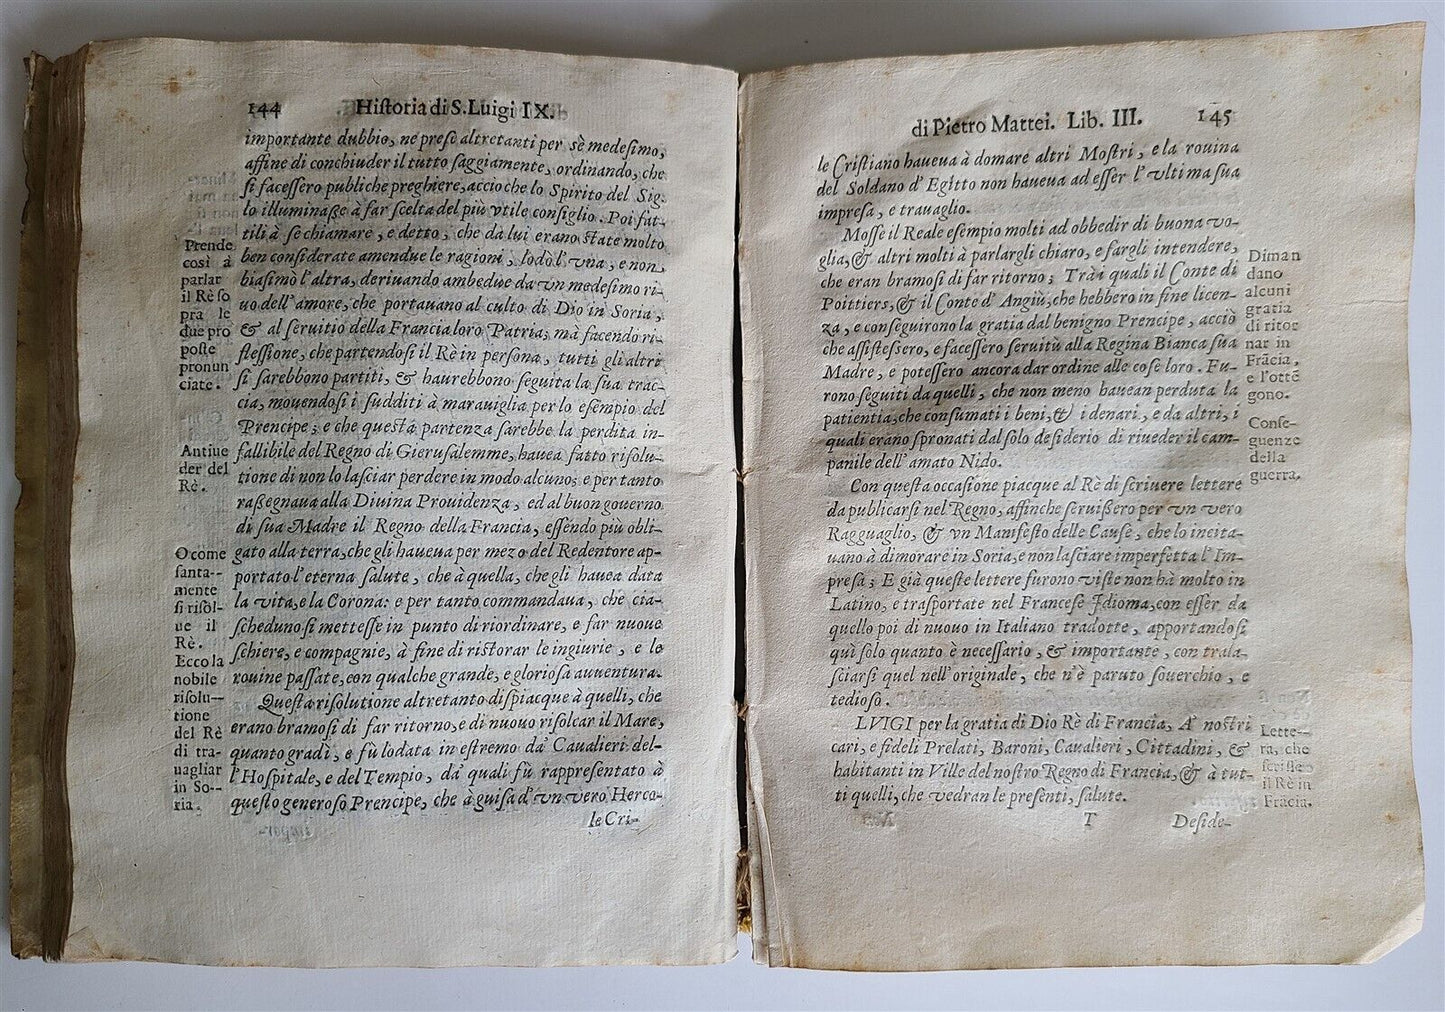 144 Historia di S. Luigi IX.
importante dubbio, ne prese altretanti per sè medesimo,
affine di conchiuder il tutto saggiamente, ordinando, che
si facessero publiche preghiere, accioche lo Spirito del Sig.
lo illuminasse à far scelta del più vtile consiglio. Poi fat-
tili à se chiamare, e detto, che da lui erano state molto
ben considerate amendue le ragioni, lodò l'vna, e non
biasimò l'altra, deriuando ambedue da vn medesimo ri-
uo dell'amore, che portauano al culto di Dio in Soria,
& al seruitio della Francia loro Patria; mà facendo ri-
flessione, che partendosi il Rè in persona, tutti gli altri
si sarebbono partiti, & haurebbono seguita la sua trac-
cia, mouendosi i sudditi à marauiglia per lo esempio del
Prencipe; e che questa partenza sarebbe la perdita in-
fallibile del Regno di Gierusalemme, hauea fatto risolu-
tione di non lo lasciar perdere in modo alcuno; e per tanto
rassegnaua alla Diuina Prouidenza, ed al buon gouerno
di sua Madre il Regno della Francia, essendo più obli-
gato alla terra, che gli haueua per mezo del Redentore ap-
portato l'eterna salute, che à quella, che gli hauea data
la vita, e la Corona: e per tanto commandaua, che cia-
scheduno si mettesse in punto di riordinare, e far nuoue
schiere, e compagnie, à fine di ristorar le ingiurie, e le
rouine passate, con qualche grande, e gloriosa auuentura.
Questa risolutione altretanto dispiacque à quelli, che
erano bramosi di far ritorno, e di nuouo risolcar il Mare,
quanto gradì, e fù lodata in estremo da' Caualieri del-
l'Hospitale, e del Tempio, da' quali fù rappresentato à
questo generoso Prencipe, che à guisa d'vn vero Herco-
le Cri-
Prende
così à
parlar
il Rè so
pra le
due pro
poste
pronun
ciate.
Antiue
der del
Rè.
O come
santa--
mente
si risol-
ue il
Rè.
Ecco la
nobile
risolu--
tione
del Rè
di tra-
uagliar
in So--
ria.
di Pietro Mattei. Lib. III. 145
le Cristiano haueua à domare altri Mostri, e la rouina
del Soldano d'Egitto non haueua ad esser l'vltima sua
impresa, e trauaglio.
Mosse il Reale esempio molti ad obbedir di buona vo-
glia, & altri molti à parlargli chiaro, e fargli intendere,
che eran bramosi di far ritorno; Trà i quali il Conte di
Poittiers, & il Conte d'Angiù, che hebbero in fine licen-
za, e conseguirono la gratia dal benigno Prencipe, acciò
che assistessero, e facessero seruitù alla Regina Bianca sua
Madre, e potessero ancora dar ordine alle cose loro. Fu-
rono seguiti da quelli, che non meno hauean perduta la
patientia, che consumati i beni, & i denari, e da altri, i
quali erano spronati dal solo desiderio di riueder il cam-
panile dell'amato Nido.
Con questa occasione piacque al Rè di scriuere lettere
da publicarsi nel Regno, affinche seruissero per vn vero
Ragguaglio, & vn Manifesto delle Cause, che lo incita-
uano à dimorare in Soria, e non lasciare imperfetta l'Im-
presa; E già queste lettere furono viste non hà molto in
Latino, e trasportate nel Francese Idioma, con esser da
quello poi di nuouo in Italiano tradotte, apportandosi
quì solo quanto è necessario, & importante, con trala-
sciarsi quel nell'originale, che n'è paruto souerchio, e
tedioso.
LVIGI per la gratia di Dio Rè di Francia, A' nostri
cari, e fideli Prelati, Baroni, Caualieri, Cittadini, &
habitanti in Ville del nostro Regno di Francia, & à tut-
ti quelli, che vedran le presenti, salute.
T Deside-
Diman
dano
alcuni
gratia
di ritor
nar in
Frãcia,
e l'ottẽ
gono.
Conse-
guenze
della
guerra.
Lette--
ra, che
scrisse
il Rè in
Francia.